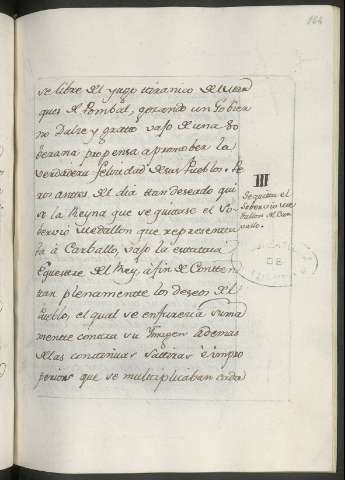 164
se libre del yugo tiranico del Mar
ques de Pombal, gozando un Gobier
no Dulze y grato vajo de una So
berana propensa a promober la
verdadera felicidad de sus Pueblos. Pe
ro antes del dia tan deseado qui
so la Reyna que se quitase el So
bervio Medallon que representa
ba à Carballo, vajo la estatua
Equestre del Rey, à fin de Conten
tar plenamente los deseos del
Pueblo, el qual se enfurecia suma
mente contra su Ymagen ademas
de las continuas satiras è impro
perios que se multiplicaban cada
III
Se quita el
Sobervio me
dallon de Car
vallo.
DE